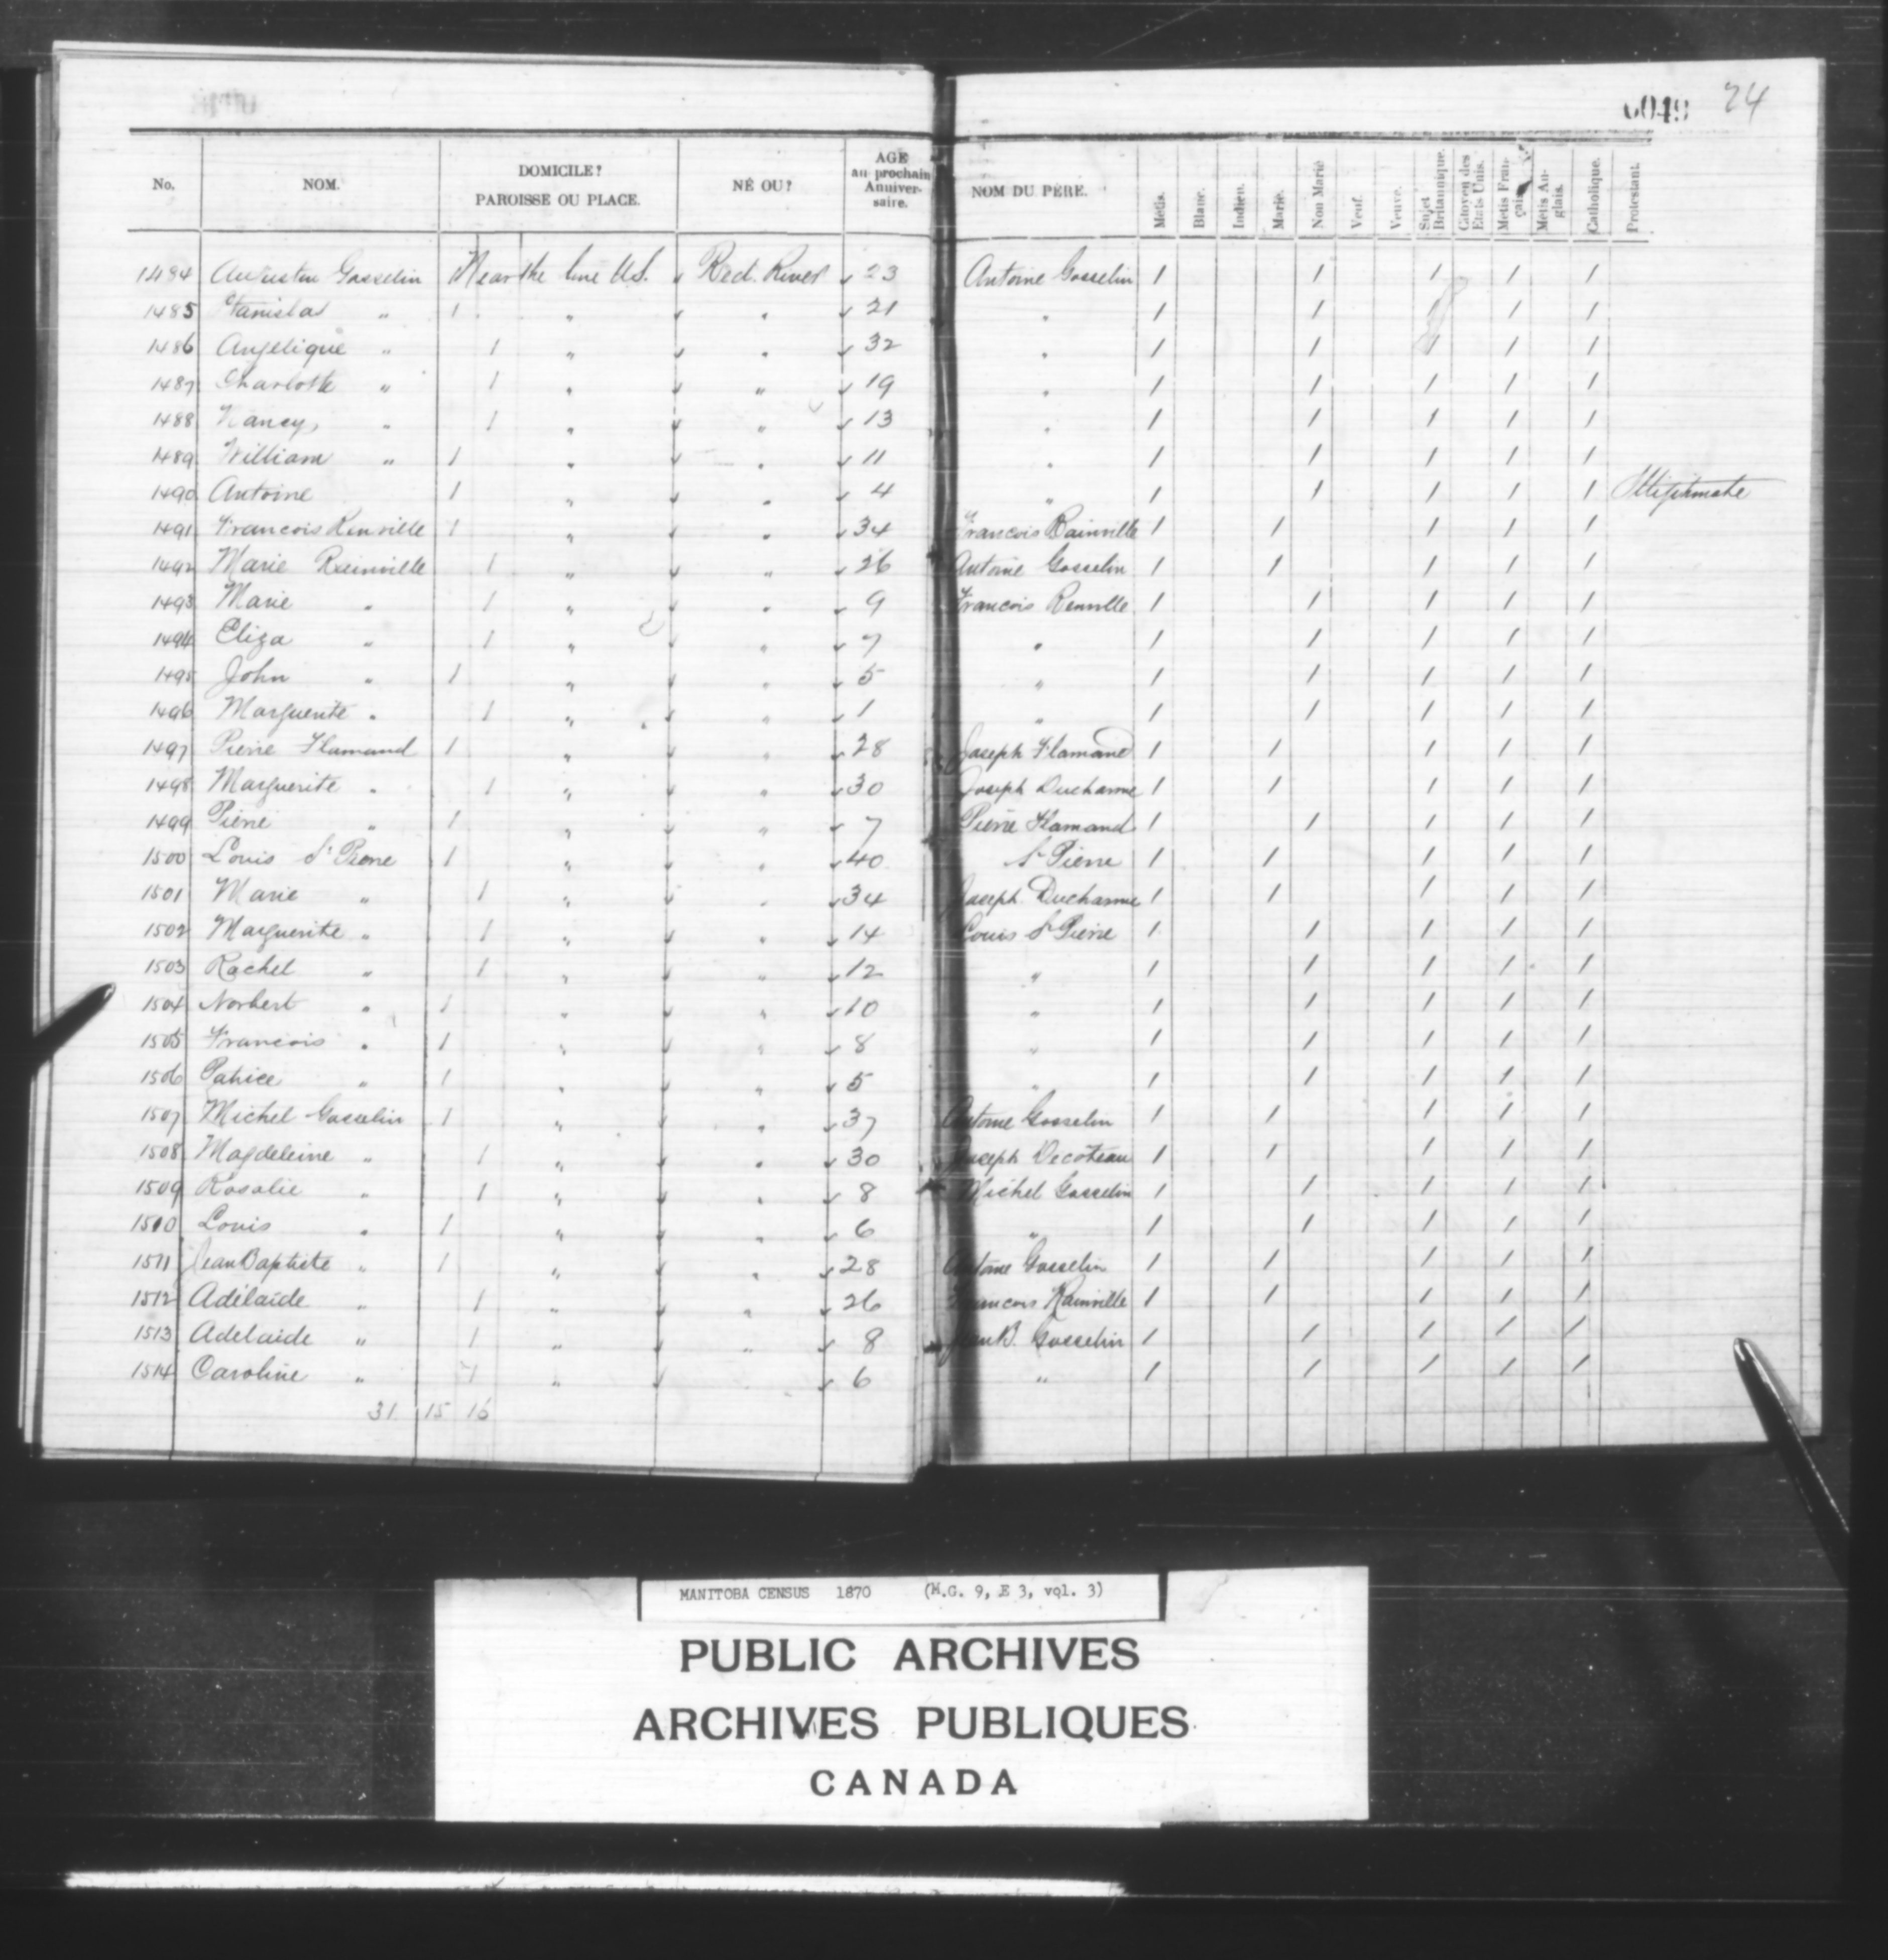 6049 24
No. NOM. DOMICILE? PAROISSE OU PLACE. NÉ OU? AGE au prochain Anniversaire. NOM DU PÈRE. Métis. Blanc. Indien. Marié. Non Marié Veuf. Veuve. Sujet Britannique. Citoyen des Etats Unis. Métis Français Métis Anglais. Catholique. Protestant.
1484 Augustin Gosselin Near the line U.S. Red River 23 Antoine Gosselin 1 1 1 1 1
1485 Stanislas " 1 " " 21 " 1 1 1 1 1
1486 Angelique " 1 " " 32 " 1 1 1 1 1
1487 Charlotte " 1 " " 19 " 1 1 1 1 1
1488 Nancy " 1 " " 13 " 1 1 1 1 1
1489 William " 1 " " 11 " 1 1 1 1 1
1490 Antoine 1 " " 4 " 1 1 1 1 1 Illigitimate
1491 Francois Renville 1 " " 34 Francois Bainville 1 1 1 1 1
1492 Marie Rainville 1 " " 26 Antoine Gosselin 1 1 1 1 1
1493 Marie " 1 " " 9 Francois Renville 1 1 1 1 1
1494 Eliza " 1 " " 7 " 1 1 1 1 1
1495 John " 1 " " 5 " 1 1 1 1 1
1496 Marguerite " 1 " " 1 " 1 1 1 1 1
1497 Pierre Flamand 1 " " 28 Joseph Flamand 1 1 1 1 1
1498 Marguerite " 1 " " 30 Joseph Ducharme 1 1 1 1 1
1499 Pierre " 1 " " 7 Pierre Flamand 1 1 1 1 1
1500 Louis St Pierre 1 " " 40 St Pierre 1 1 1 1 1
1501 Marie " 1 " " 34 Joseph Ducharme 1 1 1 1 1
1502 Marguerite " 1 " " 14 Louis St Pierre 1 1 1 1 1
1503 Rachel " 1 " " 12 " 1 1 1 1 1
1504 Norbert " 1 " " 10 " 1 1 1 1 1
1505 Francois " 1 " " 8 " 1 1 1 1 1
1506 Patrice " 1 " " 5 " 1 1 1 1 1
1507 Michel Gosselin 1 " " 37 Antoine Gosselin 1 1 1 1 1
1508 Magdeleine " 1 " " 30 Joseph Decoteau 1 1 1 1 1
1509 Rosalie " 1 " " 8 Michel Gosselin 1 1 1 1 1
1510 Louis " 1 " " 6 " 1 1 1 1 1
1511 Jean Baptiste " 1 " " 28 Antoine Gosselin 1 1 1 1 1
1512 Adélaide " 1 " " 26 Francois Rainville 1 1 1 1 1
1513 Adelaide " 1 " " 8 Jean B. Gosselin 1 1 1 1 1
1514 Caroline " 1 " " 6 " 1 1 1 1 1
31 15 16
MANITOBA CENSUS 1870 (M.G. 9, E 3, vol. 3)
PUBLIC ARCHIVES
ARCHIVES PUBLIQUES
CANADA